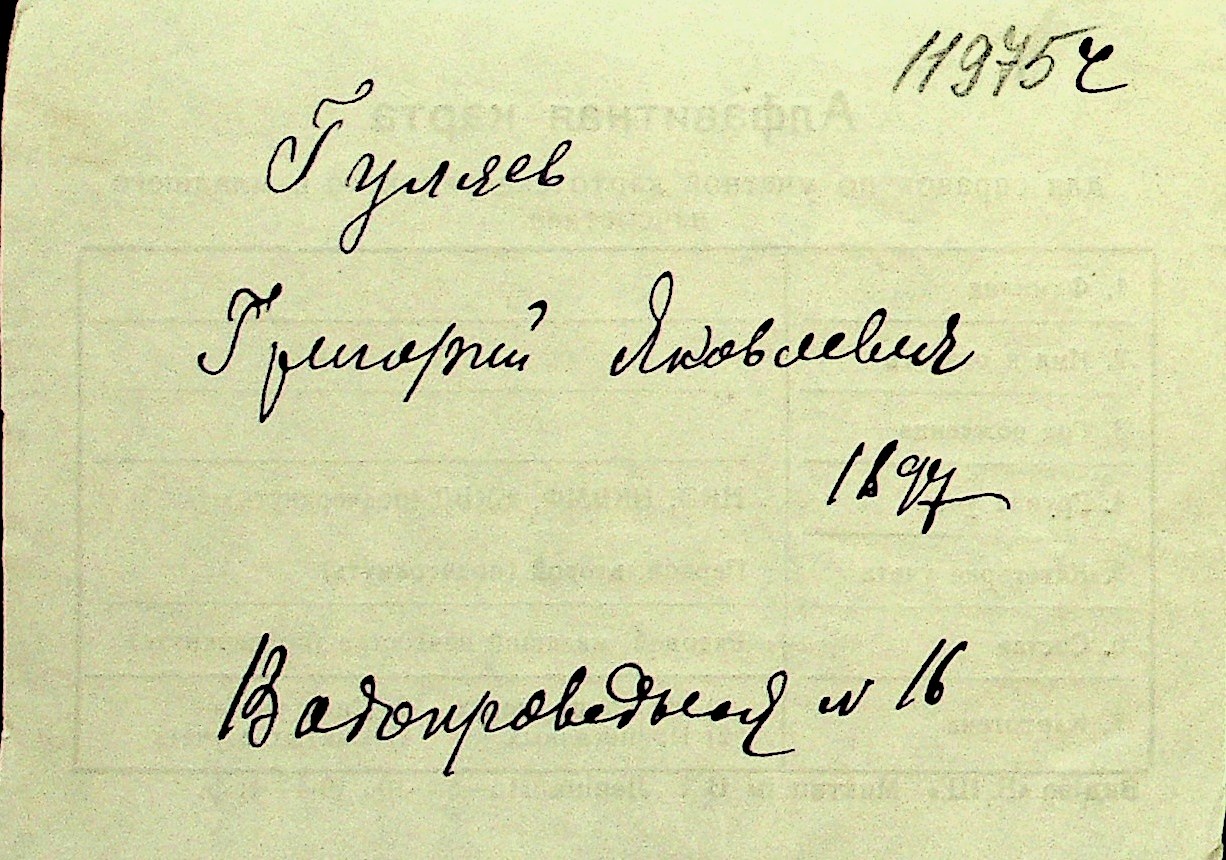 11975ч
Гуляев
Григорий Яковлевич
1897
Водопроводная № 16